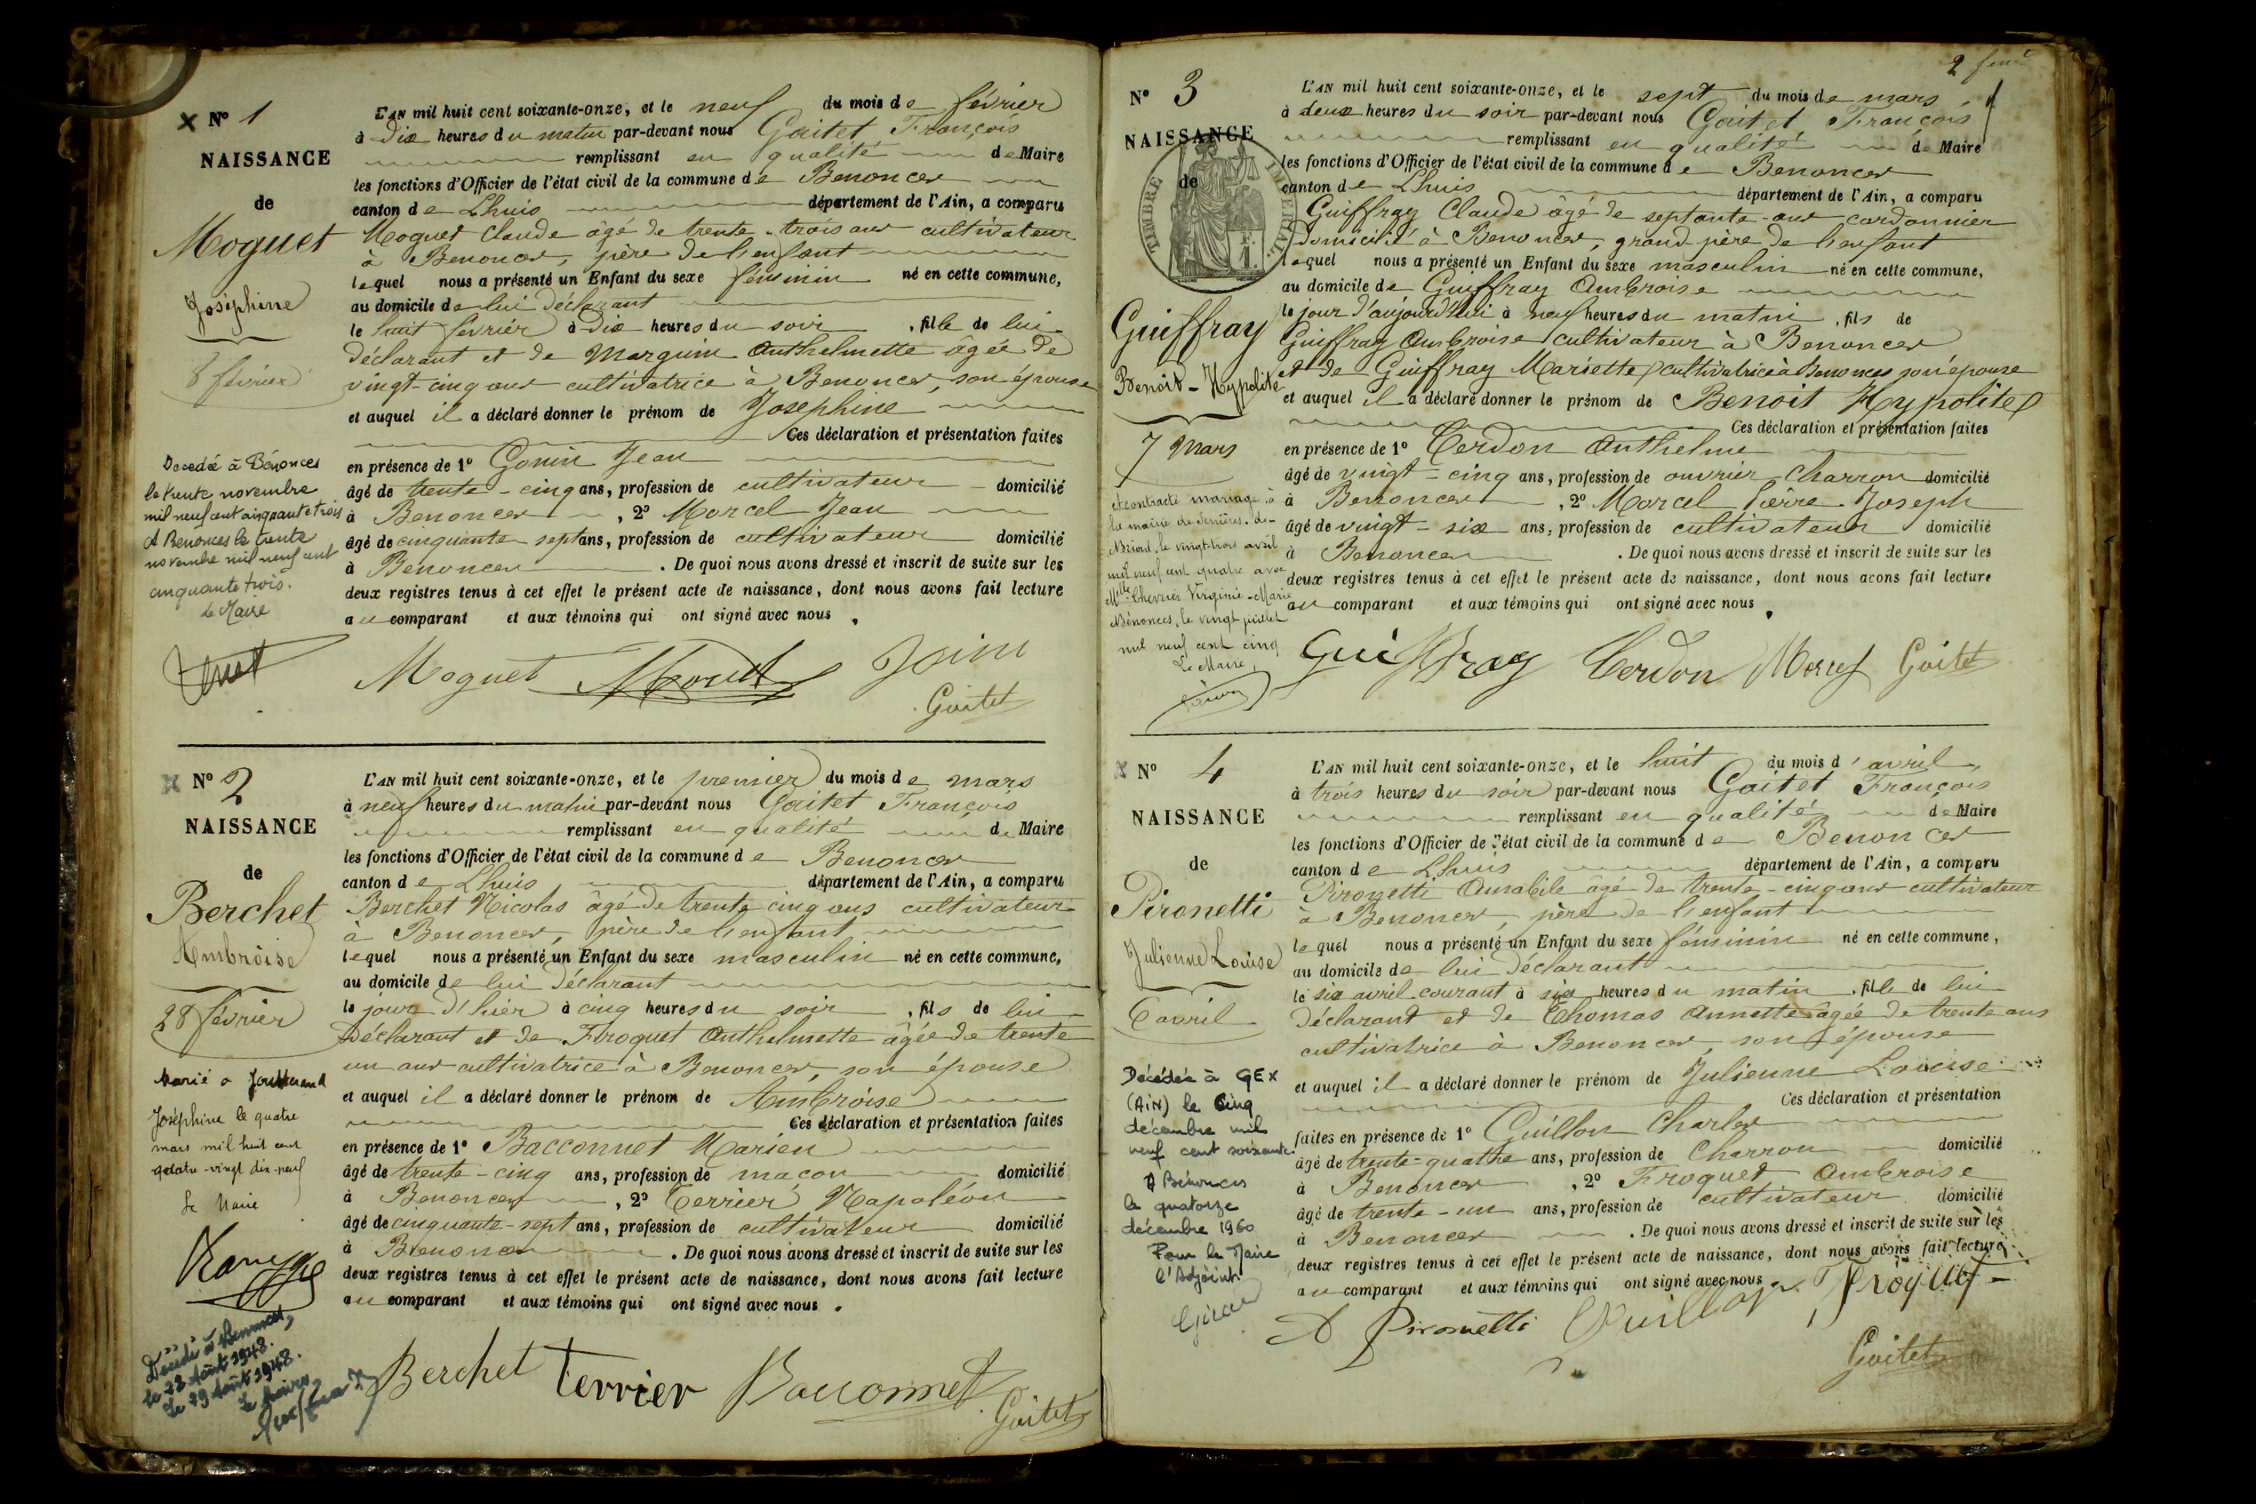 N° 1
NAISSANCE
de
Moguet
Joséphine
8 février
Decedée à Bénonces
le trente novembre
mil neuf cent cinquante trois
A Benonces le trente
novembre mil neuf cent
cinquante trois.
Le Maire
L'AN mil huit cent soixante-onze, et le neuf du mois de février
à dix heures du matin par-devant nous Gaitet François
remplissant en qualité de Maire
les fonctions d'Officier de l'état civil de la commune de Benonces
canton de Lhuis département de l'Ain, a comparu
Moguet Claude âgé de trente-trois ans cultivateur
à Benonces, père de l'enfant
lequel nous a présenté un Enfant du sexe féminin né en cette commune,
au domicile de lui déclarant
le huit février à dix heures du soir, fille de lui
déclarant et de Marguin Anthelmette âgée de
vingt-cinq ans cultivatrice à Benonces, son épouse
et auquel il a déclaré donner le prénom de Joséphine
Ces déclaration et présentation faites
en présence de 1° Gonin Jean
âgé de trente-cinq ans, profession de cultivateur domicilié
à Benonces, 2° Morcel Jean
âgé de cinquante sept ans, profession de cultivateur domicilié
à Benonces. De quoi nous avons dressé et inscrit de suite sur les
deux registres tenus à cet effet le présent acte de naissance, dont nous avons fait lecture
au comparant et aux témoins qui ont signé avec nous.
Moguet
Gaitet
N° 2
NAISSANCE
de
Berchet
Ambroise
28 février
Marié à
Joséphine le quatre
mars mil huit cent
quatre-vingt dix-neuf
Le Maire
Décédé à Benonces,
le 28 Août 1948.
Le 29 Août 1948.
Le Maire
L'AN mil huit cent soixante-onze, et le premier du mois de mars
à neuf heures du matin par-devant nous Gaitet François
remplissant en qualité de Maire
les fonctions d'Officier de l'état civil de la commune de Benonces
canton de Lhuis département de l'Ain, a comparu
Berchet Nicolas âgé de trente cinq ans cultivateur
à Benonces, père de l'enfant
lequel nous a présenté un Enfant du sexe masculin né en cette commune,
au domicile de lui déclarant
le jour d'hier à cinq heures du soir, fils de lui
déclarant et de Froquet Anthelmette âgée de trente
un ans cultivatrice à Benonces, son épouse
et auquel il a déclaré donner le prénom de Ambroise
Ces déclaration et présentation faites
en présence de 1° Bacconnet Marien
âgé de trente-cinq ans, profession de maçon domicilié
à Benonces, 2° Terrier Napoléon
âgé de cinquante-sept ans, profession de cultivateur domicilié
à Benonces. De quoi nous avons dressé et inscrit de suite sur les
deux registres tenus à cet effet le présent acte de naissance, dont nous avons fait lecture
au comparant et aux témoins qui ont signé avec nous.
Berchet Terrier Bacconnet
Gaitet
2
N° 3
NAISSANCE
de
TIMBRE IMPÉRIAL
Guiffray
Benoit-Hypolite
7 Mars
A contracté mariage à
la mairie de
Briord, le vingt-trois avril
mil neuf cent quatre avec
Mlle Chevrier Virginie-Marie
Bénonces, le vingt juillet
mil neuf cent cinq
Le Maire,
L'AN mil huit cent soixante-onze, et le sept du mois de mars
à deux heures du soir par-devant nous Gaitet François
remplissant en qualité de Maire
les fonctions d'Officier de l'état civil de la commune de Benonces
canton de Lhuis département de l'Ain, a comparu
Guiffray Claude âgé de septante-ans cordonnier
domicilié à Benonces, grand-père de l'enfant
lequel nous a présenté un Enfant du sexe masculin né en cette commune,
au domicile de Guiffray Ambroise
le jour d'aujourd'hui à neuf heures du matin, fils de
Guiffray Ambroise cultivateur à Benonces
et de Guiffray Mariette cultivatrice à Benonces son épouse
et auquel il a déclaré donner le prénom de Benoit Hypolite
Ces déclaration et présentation faites
en présence de 1° Cerdon Anthelme
âgé de vingt-cinq ans, profession de ouvrier-charron domicilié
à Benonces, 2° Morcel Pierre Joseph
âgé de vingt-six ans, profession de cultivateur domicilié
à Benonces. De quoi nous avons dressé et inscrit de suite sur les
deux registres tenus à cet effet le présent acte de naissance, dont nous avons fait lecture
au comparant et aux témoins qui ont signé avec nous.
Guiffray Cerdon Morcel Gaitet
N° 4
NAISSANCE
de
Pironetti
Julienne Louise
6 avril
Décédée à GEX
(AiN) le cinq
décembre mil
neuf cent soixante.
A Bénonces
le quatorze
décembre 1960
Pour le Maire
l'Adjoint
L'AN mil huit cent soixante-onze, et le huit du mois d'avril
à trois heures du soir par-devant nous Gaitet François
remplissant en qualité de Maire
les fonctions d'Officier de l'état civil de la commune de Benonces
canton de Lhuis département de l'Ain, a comparu
Pironetti Amabile âgé de trente-cinq ans cultivateur
à Benonces, père de l'enfant
lequel nous a présenté un Enfant du sexe féminin né en cette commune,
au domicile de lui déclarant
le six avril courant à six heures du matin, fille de lui
déclarant et de Thomas Annette âgée de trente ans
cultivatrice à Benonces, son épouse
et auquel il a déclaré donner le prénom de Julienne Louise
Ces déclaration et présentation
faites en présence de 1° Guillon Charles
âgé de trente-quatre ans, profession de Charron domicilié
à Benonces, 2° Froquet Ambroise
âgé de trente-un ans, profession de cultivateur domicilié
à Benonces. De quoi nous avons dressé et inscrit de suite sur les
deux registres tenus à cet effet le présent acte de naissance, dont nous avons fait lecture
au comparant et aux témoins qui ont signé avec nous
A Pironetti Guillon Froquet
Gaitet